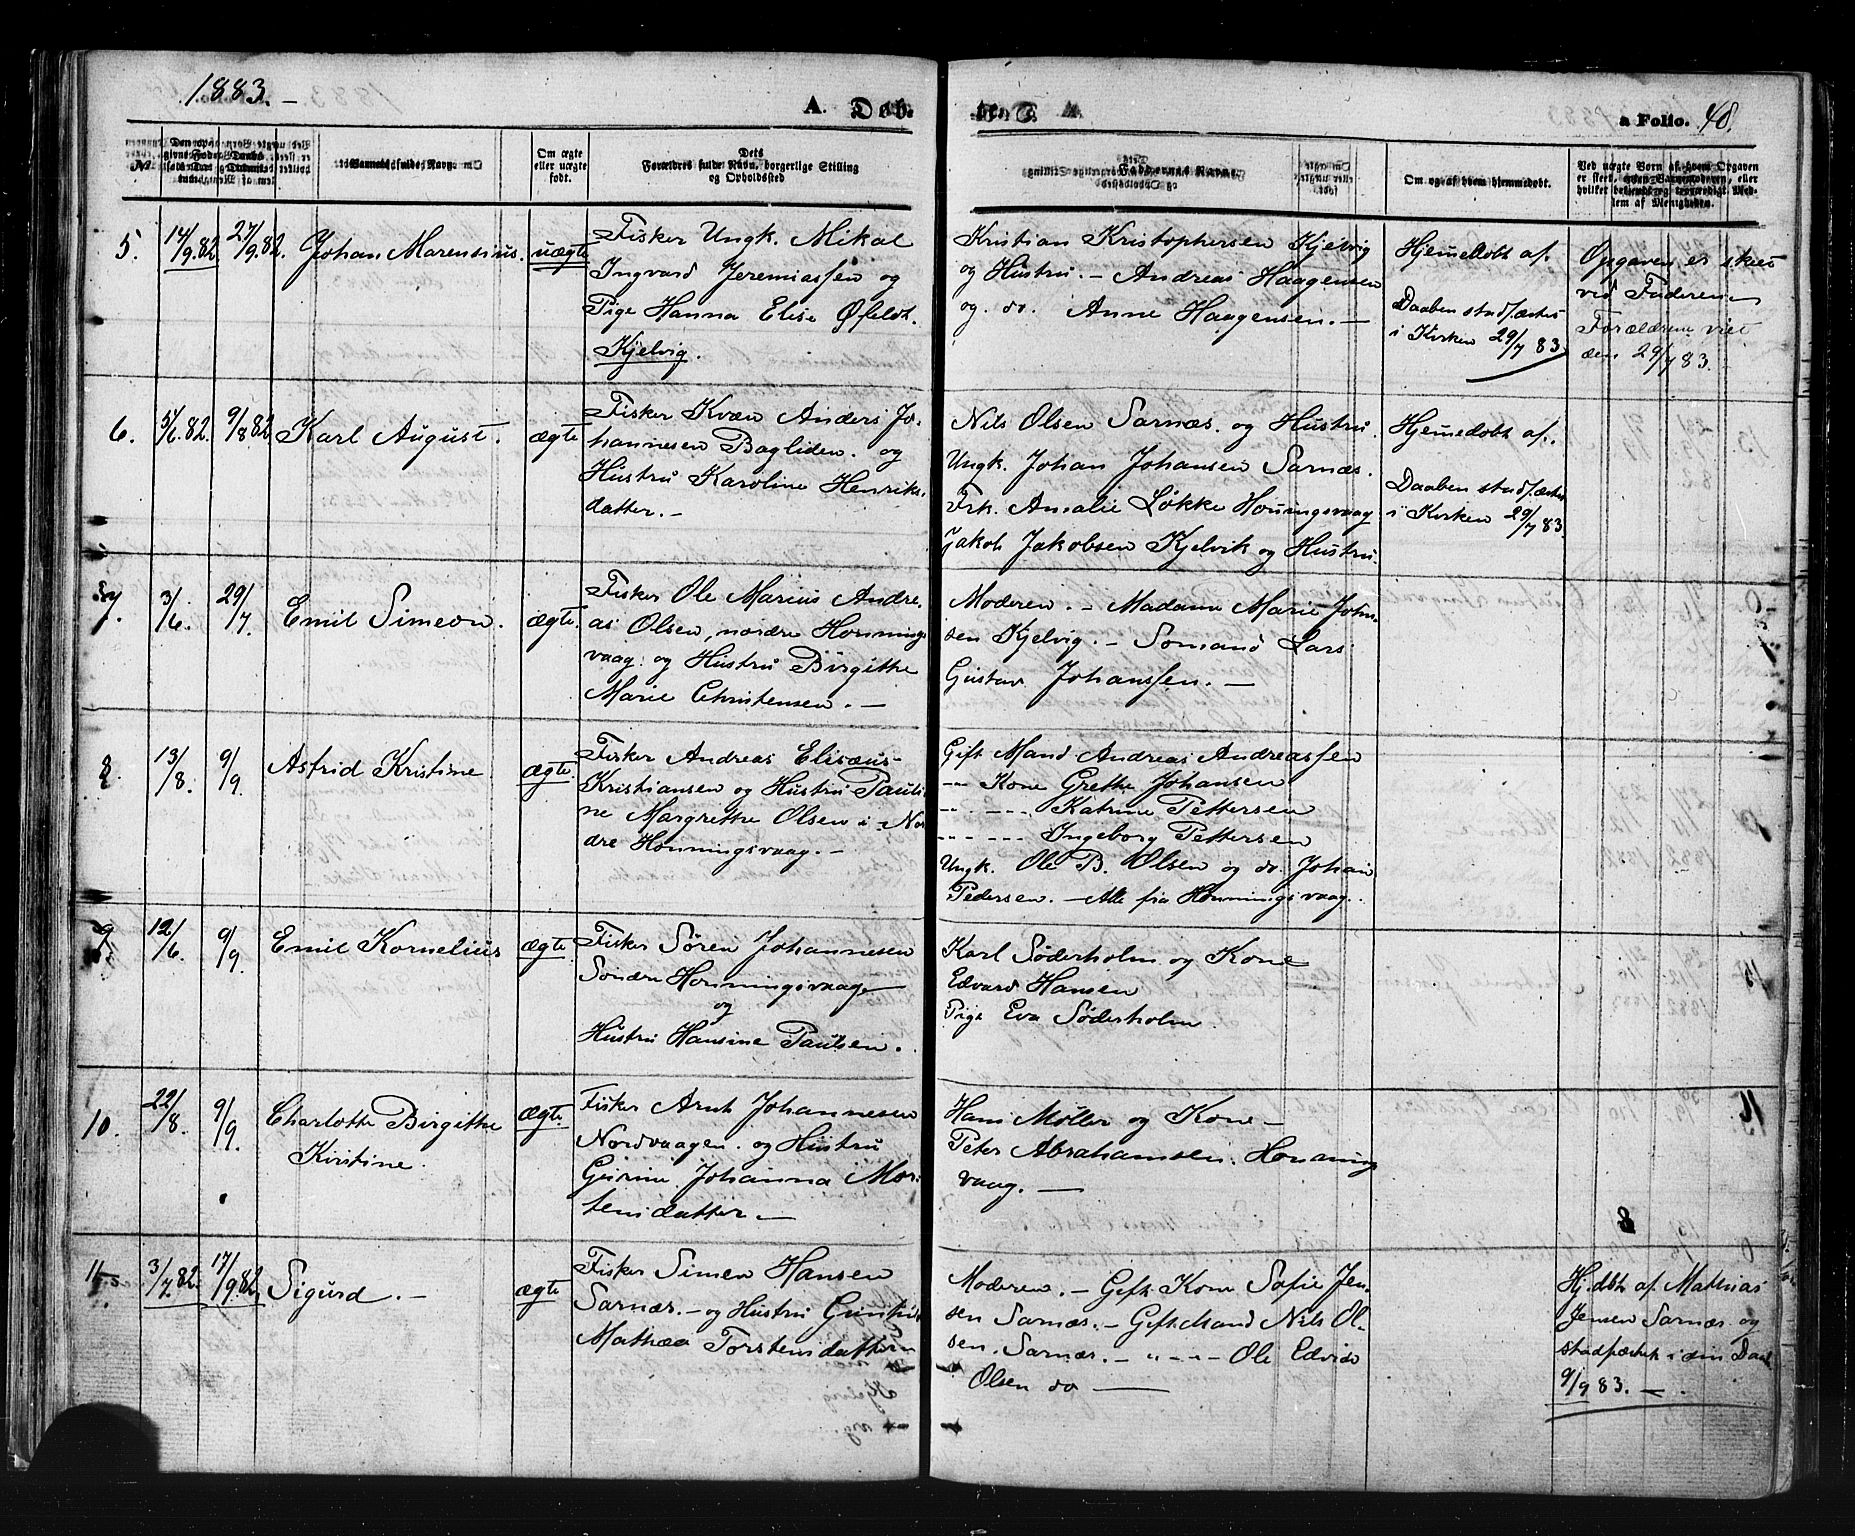 1883.-
A. Døb te.
a Folio. 48.
No.
Barnets fulde Navn.
Om ægte eller uægte født.
Dets Forældres fulde Navn, borgerlige Stilling og Opholdssted
Faddernes Navne.
Om og af hvem hjemmedøbt.
Ved uægte Børn af hvem Opgaven er skeet,
5. 14/9.82 27/9.82. Johan Marensius. uægte
Fisker Ungk. Mikal
Ingvard Jeremiassen og
Pige Hanna Elise Øfeldt.
Kjelvig.
Kristian Kristophersen Kjelvig
og Hustru. - Andreas Haagensen
og do. Anne Haagensen. -
Hjemedøbt af.
Daaben stadfæstet
i Kirken 29/7 83.
Opgaven er skeet
ved Faderen -
Forældrene viet
den 29/7 83.
6. 5/6.82. 9/8 82 Karl August. ægte
Fisker Kvæn Anders Jo-
hannesen Bagliden. og
Hustru Karoline Henriks-
datter. -
Nils Olsen Sarnæs. og Hustru.
Ungk. Johan Johansen Sarnæs.
Frk. Amalie Løkke Honningsvaag
Jakob Jakobsen Kjelvik og Hustru.
Hjemedøbt af.
Daaben stadfæstet
i Kirken 29/7 83.
7. 3/6. 29/7. Emil Simeon. ægte.
Fisker Ole Marius Andre-
as Olsen, nordre Honnings
vaag. og Hustru Birgitte
Marie Christensen. -
Moderen. - Madame Marie John-
sen Kjelvig. - Sømand Lars
Gustav Johanssen. -
8. 13/8. 9/9. Astrid Kristine ægte.
Fisker Andreas Elisæus
Kristiansen og Hustru Pauli-
ne Margrethe Olsen i Nor-
dre Honningsvaag. -
Gift Mand Andreas Andreassen
-"- Kone Grethe Johansen
" - - - Katrine Pettersen
" - - - Ingeborg Pettersen
Ungk. Ole B. Olsen og do. Johan
Pedersen. - Alle fra Honningsvaag.
9. 12/6 9/9. Emil Kornelius ægte.
Fisker Sören Johannesen
Sondre Honningsvaag
og
Hustru Hansine Paulsen.
Karl Söderholm og Kone
Edvard Hansen
Pige Eva Söderholm.
10. 22/8. 9/9. Charlotte Birgitte
Kirstine.
ægte.
Fisker Arnt Johannesen
Nordvaagen. og Hustru
Gurine Johanna Mor-
tensdatter -
Hans Møller og Kone -
Peter Abrahamsen. Honning
vaag. -
11. 3/7.82. 17/9.82 Sigurd. - ægte
Fisker Simen Hansen
Sarnæs. - og Hustru
Mathea Torstensdatter
Moderen. - Gift Kone Sofie Jen-
sen Sarnæs. - Gift Mand Nils Ol-
sen. Sarnæs. - " - - Ole Edvid
Olsen do -
Hj.døbt af Mathias
Jensen Sarnæs og
stadfæstet i din Daab
9/9 83. -